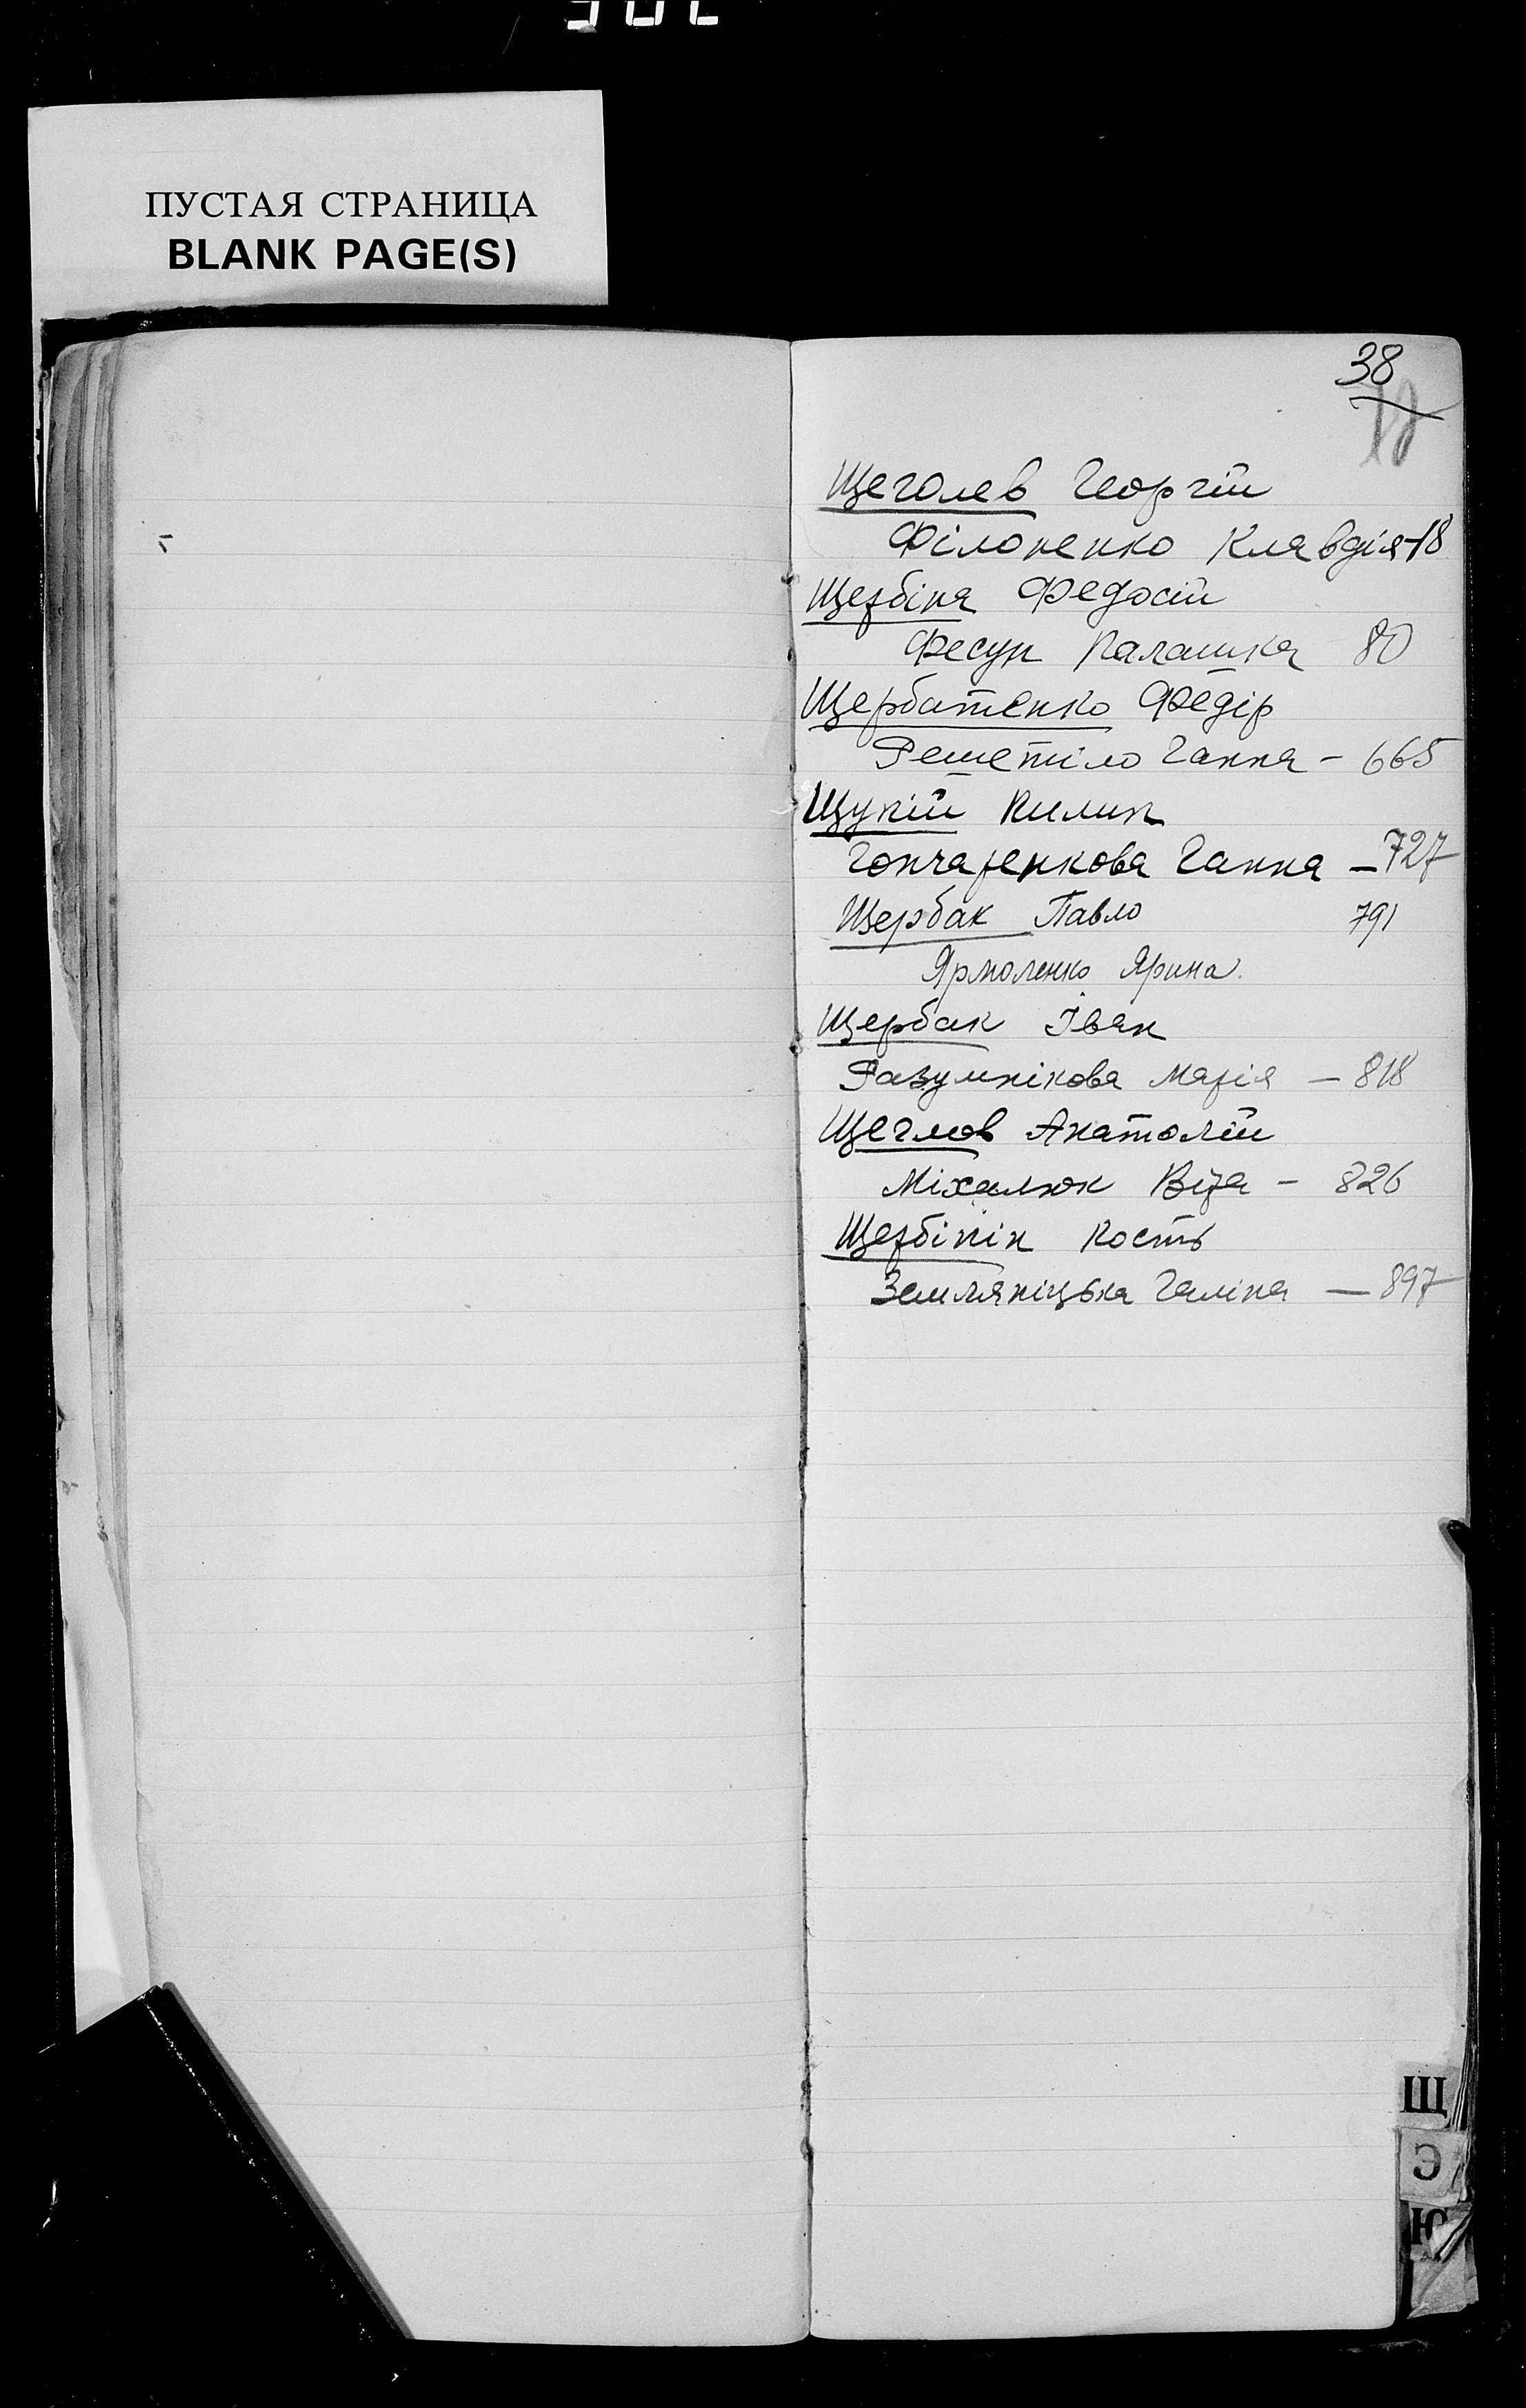 ПУСТАЯ СТРАНИЦА
BLANK PAGE(S)
38
Щеголев Георгій
Філоненко Клавдія-18
Щербіна Федосій
Фесун Палашка 80
Щербатенко Федір
Решетіло Ганна - 665
Щукій Килин
Гончаренкова Ганна - 727
Щербак Павло 791
Ярмоленко Ярина.
Щербак Іван
Разумнікова Марія - 818
Щеглов Анатолій
Міхалюк Віра - 826
Щербінін Кость
Земляніцька Галіна - 897
Щ
Э
Ю